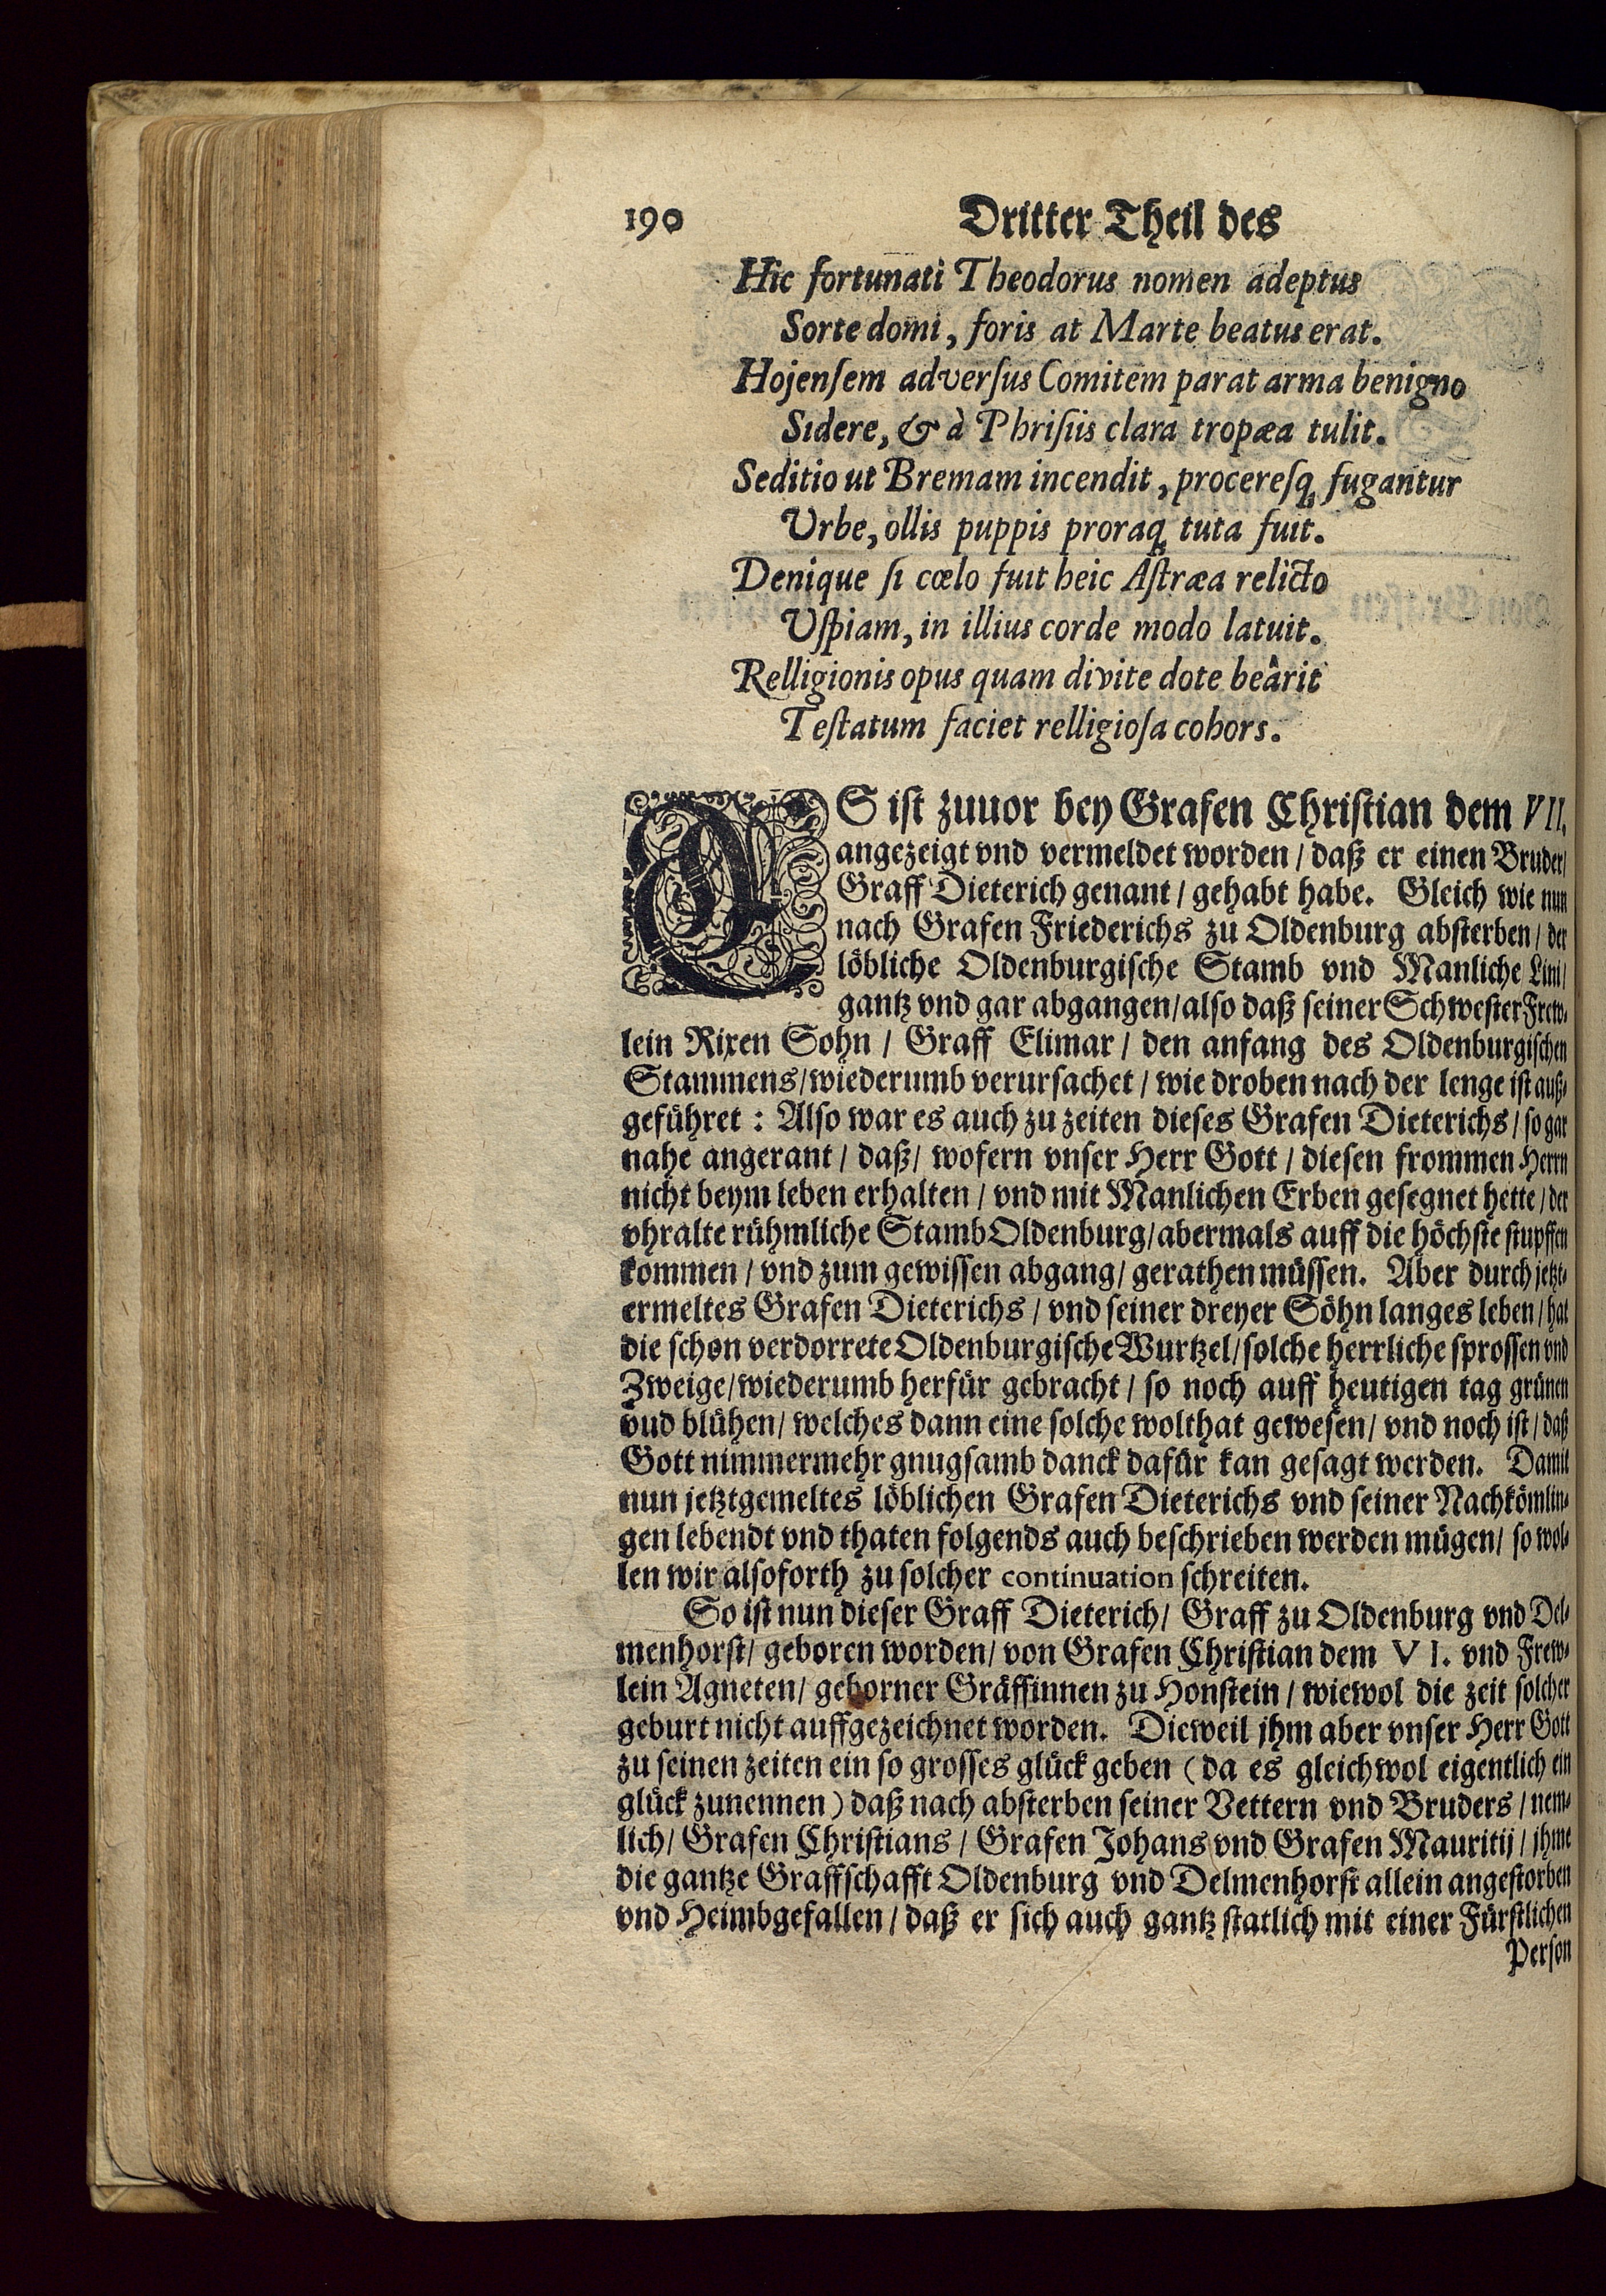 190 Dritter Theil des
Hic fortunati Theodorus nomen adeptus
Sorte domi, foris at Marte beatus erat.
Hojenſem adverſus Comitem parat arma benigno
Sidere, & à Phriſiis clara tropæa tulit.
Seditio ut Bremam incendit, procereſq́; fugantur
Urbe, ollis puppis proraq́; tuta fuit.
Denique ſi cœlo fuit heic Aſtræa relicto
Uſpiam, in illius corde modo latuit.
Relligionis opus quam divite dote beârit
Teſtatum faciet relligioſa cohors.
ES iſt zuuor bey Grafen Chriſtian dem VII.
angezeigt vnd vermeldet worden / daß er einen Bruder /
Graff Dieterich genant / gehabt habe. Gleich wie nun
nach Grafen Friederichs zu Oldenburg abſterben / der
löbliche Oldenburgiſche Stamb vnd Manliche Lini /
gantz vnd gar abgangen / alſo daß ſeiner Schweſter Frew-
lein Rixen Sohn / Graff Elimar / den anfang des Oldenburgiſchen
Stammens / wiederumb verurſachet / wie droben nach der lenge iſt auß-
geführet : Alſo war es auch zu zeiten dieſes Grafen Dieterichs / ſo gar
nahe angerant / daß / wofern vnſer Herr Gott / dieſen frommen Herrn
nicht beym leben erhalten / vnd mit Manlichen Erben geſegnet hette / der
vhralte rühmliche Stamb Oldenburg / abermals auff die höchſte ſtupffen
kommen / vnd zum gewiſſen abgang / gerathen müſſen. Aber durch jetzt-
ermeltes Grafen Dieterichs / vnd ſeiner dreyer Söhn langes leben / hat
die ſchon verdorrete Oldenburgiſche Wurtzel / ſolche herrliche ſproſſen vnd
Zweige / wiederumb herfür gebracht / ſo noch auff heutigen tag grünen
vud blühen / welches dann eine ſolche wolthat geweſen / vnd noch iſt / daß
Gott nimmermehr gnugſamb danck dafür kan geſagt werden. Damit
nun jetztgemeltes löblichen Grafen Dieterichs vnd ſeiner Nachkömlin-
gen lebendt vnd thaten folgends auch beſchrieben werden mügen / ſo wol-
len wir alſoforth zu ſolcher continuation ſchreiten.
So iſt nun dieſer Graff Dieterich / Graff zu Oldenburg vnd Del-
menhorſt / geboren worden / von Grafen Chriſtian dem VI. vnd Frew-
lein Agneten / geborner Gräffinnen zu Honſtein / wiewol die zeit ſolcher
geburt nicht auffgezeichnet worden. Dieweil jhm aber vnſer Herr Gott
zu ſeinen zeiten ein ſo groſſes glück geben ( da es gleichwol eigentlich ein
glück zunennen ) daß nach abſterben ſeiner Vettern vnd Bruders / nem-
lich / Grafen Chriſtians / Grafen Johans vnd Grafen Mauritij / jhme
die gantze Graffſchafft Oldenburg vnd Delmenhorſt allein angeſtorben
vnd Heimbgefallen / daß er ſich auch gantz ſtatlich mit einer Fürſtlichen
Perſon